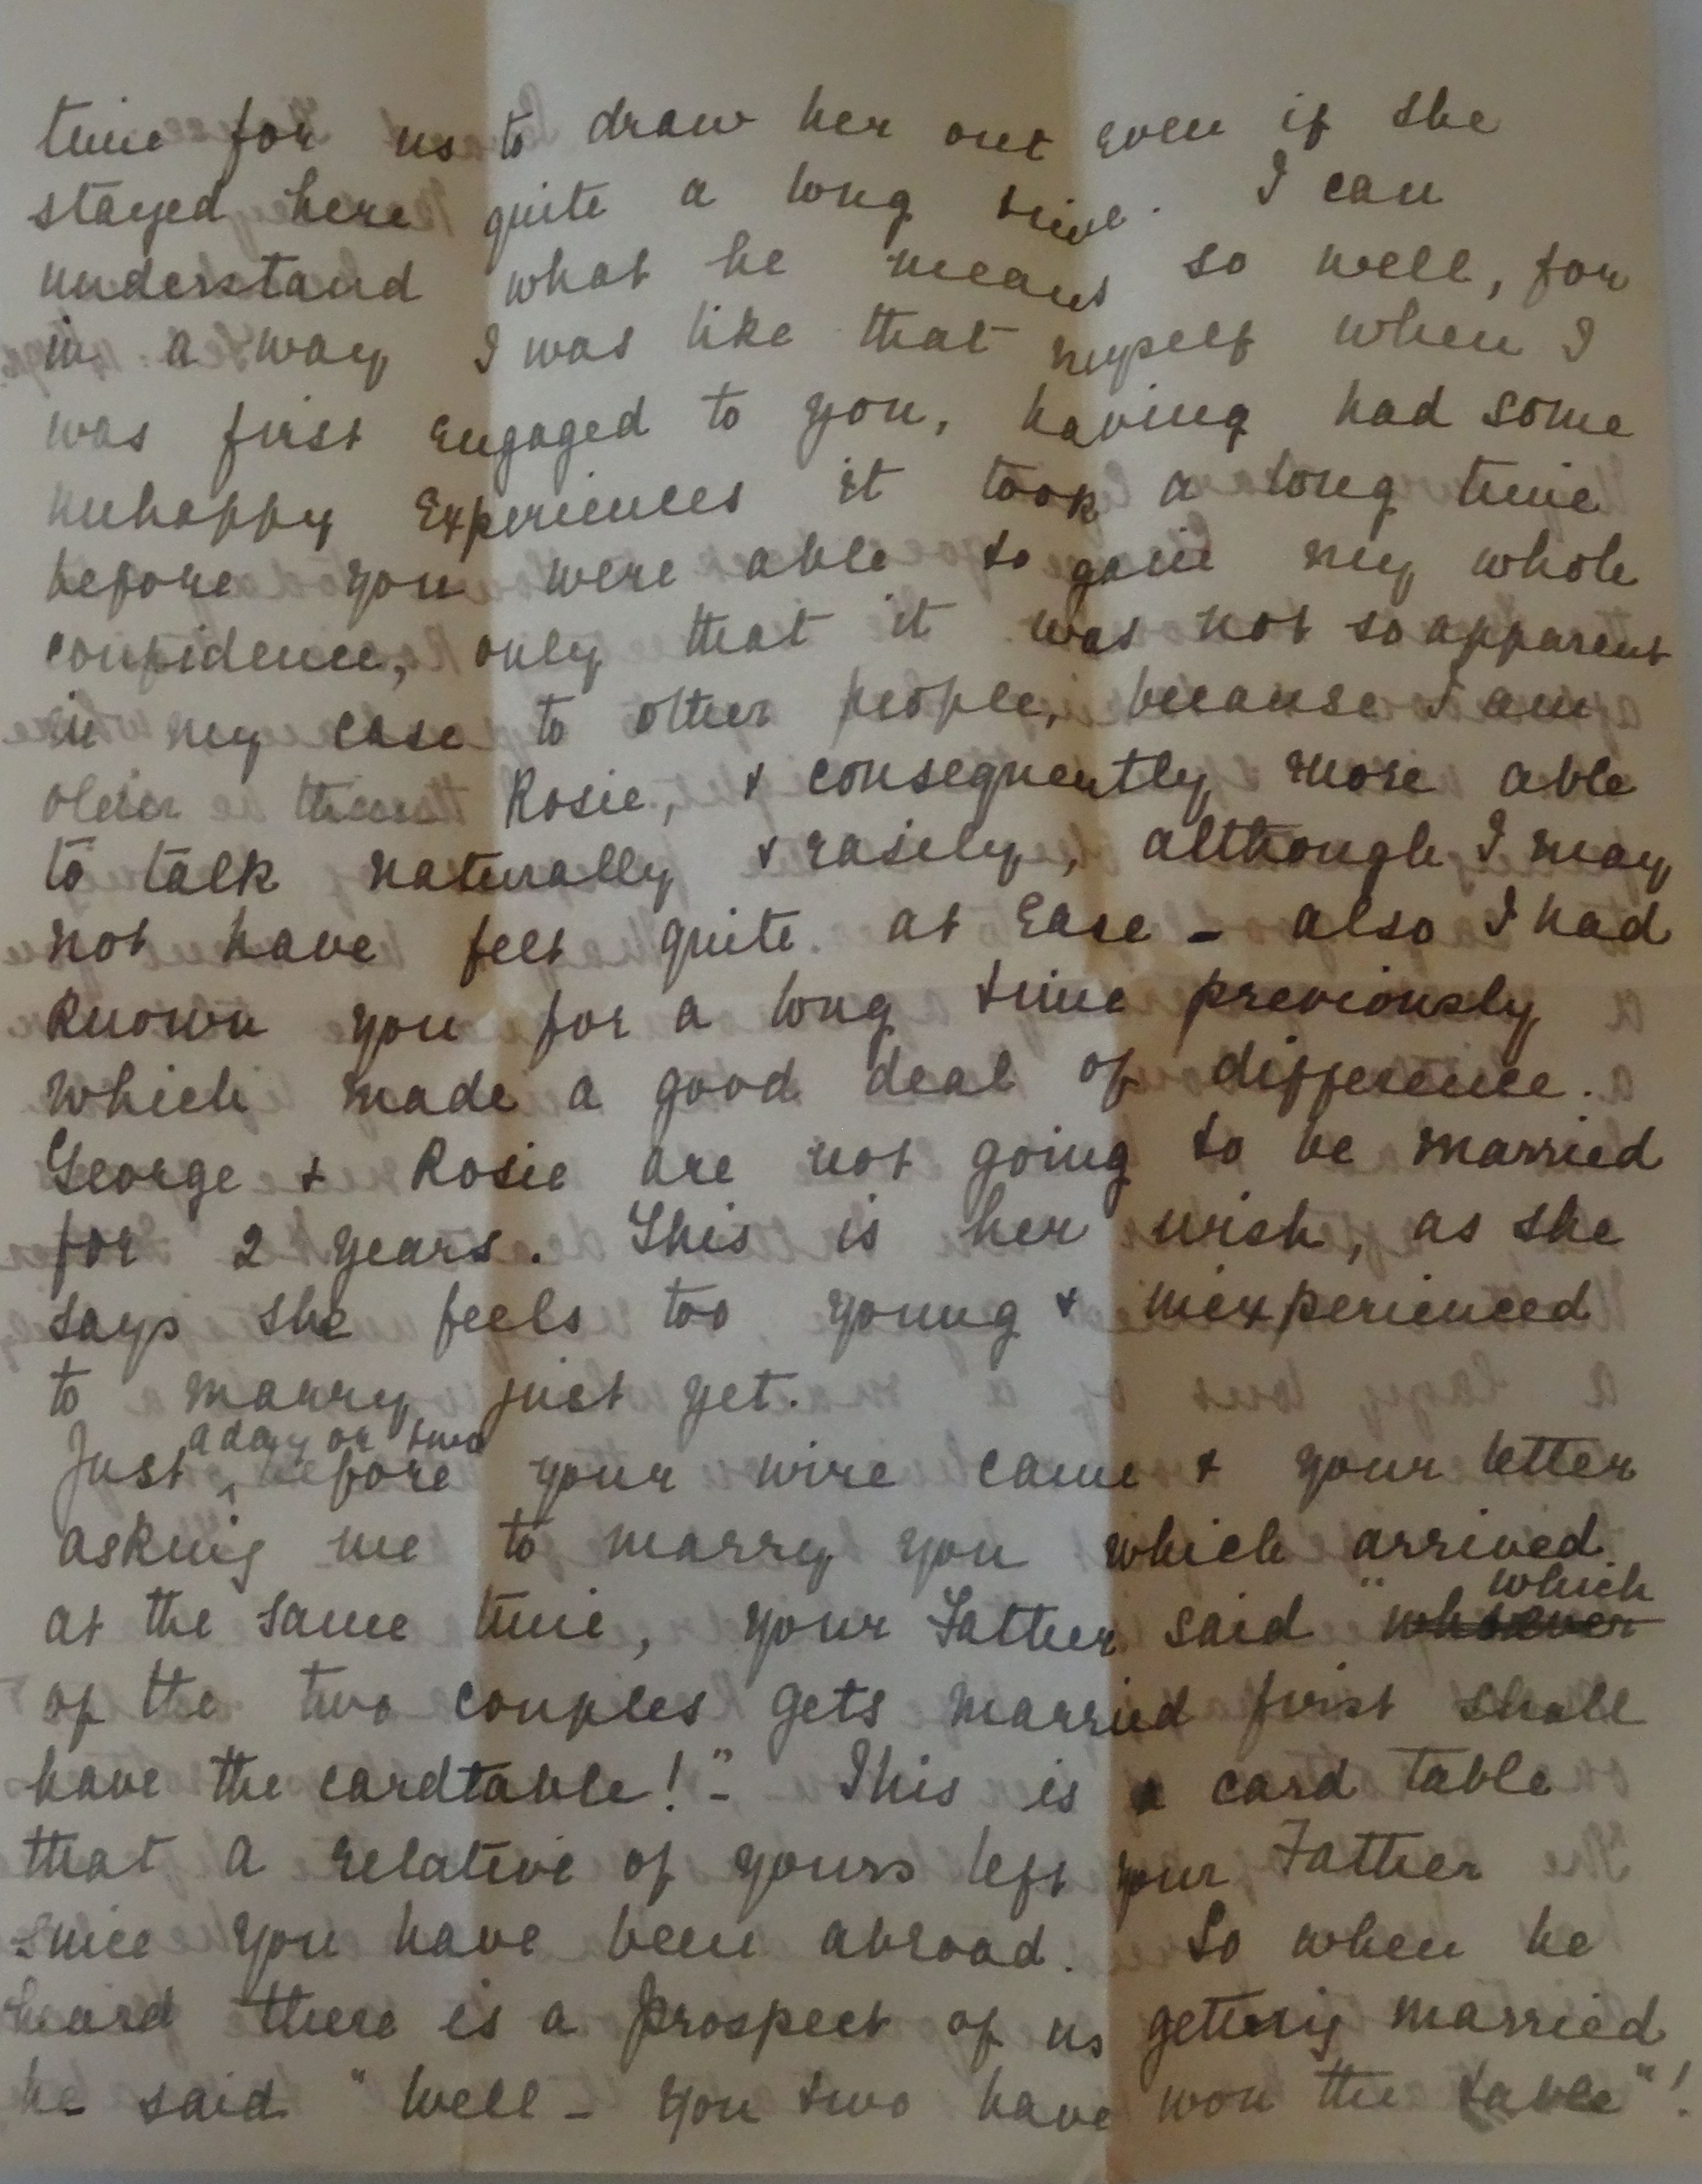 time for us to draw her out even if she
stayed here quite a long time. I can
understand what he means so well, for
in a way I was like that myself when I
was first engaged to you, having had some
unhappy experiences it took a long time
before you were able to gain my whole
confidence, only that it was not so apparent
in my case to other people, because I am
older than Rosie, & consequently more able
to talk naturally & easily, although I may
not have felt quite at ease - also I had
known you for a long time previously
which made a good deal of difference.
George & Rosie are not going to be married
for 2 years. This is her wish, as she
says she feels too young & inexperienced
to marry just yet.
a day or two
Just before your wire came & your letter
asking me to marry you which arrived
which
at the same time, your Father said "whoever
of the two couples gets married first shall
have the cardtable!"- This is a card table
that a relative of yours left your Father
since you have been abroad. So when he
heard there is a prospect of us getting married
he said "Well - you two have won the table"!